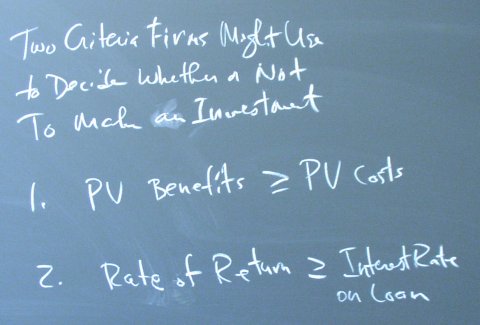 Two Criteria Firms Might Use
to Decide Whether or Not
To Make an Investment
1. PV Benefits ≥ PV Costs
2. Rate of Return ≥ Interest Rate
on Loan